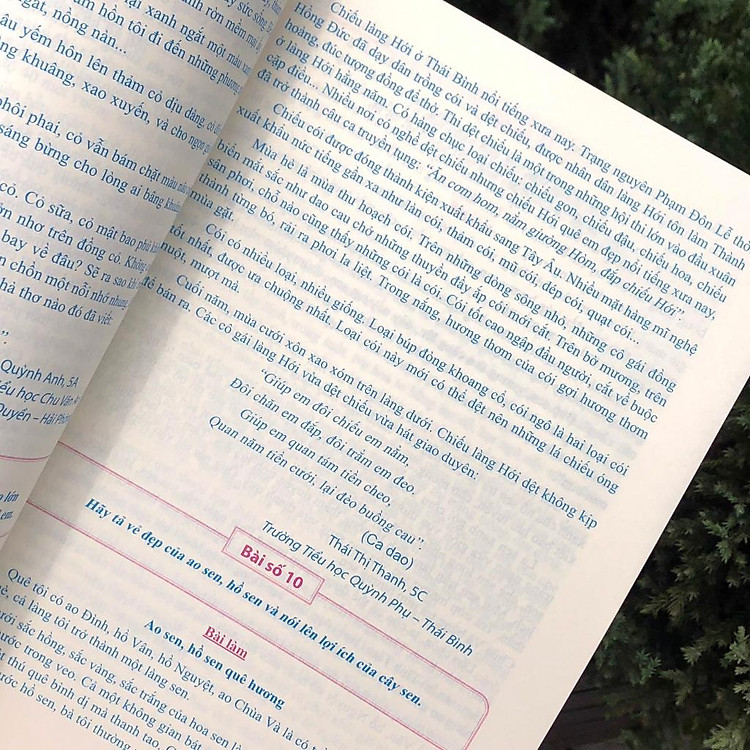 gát, nồng nàn...
khuâng, xao xuyến, và cho
phôi phai, cỏ vẫn bám chặt
sáng bừng cho lòng ai bâng
cỏ. Cỏ sữa, cỏ mật bao phủ
nhơ trên đồng cỏ. Không
bay về đâu? Sẽ ra sao khi
chốn một nỗi nhớ nhung
nhà thơ nào đó đã viết:
Quỳnh Anh, 5A
Tiểu học Chu Văn
Quyền – Hải
Chiếu làng Hới ở Thái Bình nổi tiếng xưa nay. Trạng nguyên Phạm Đôn Lễ
Hồng Đức đã dạy dân trồng cói và dệt chiếu, được nhân dân làng Hới tôn làm Thành
hoàng, đúc tượng đồng để thờ. Thi dệt chiếu là một trong những hội thi lớn vào đầu xuân
ở làng Hới hằng năm. Có hàng chục loại chiếu: chiếu gon, chiếu đậu, chiếu hoa, chiếu
cạp điều... Nhiều nơi có nghề dệt chiếu nhưng chiếu Hới quê em đẹp nổi tiếng xưa nay,
đã trở thành câu ca truyền tụng: "Ăn cơm hom, nằm giường Hòm, đắp chiếu Hới".
Chiếu cói được đóng thành kiện xuất khẩu sang Tây Âu. Nhiều mặt hàng mĩ nghệ
xuất khẩu nức tiếng gần xa như làn cói, thảm cói, mũ cói, dép cói, quạt cói...
Mùa hè là mùa thu hoạch cói. Trên những dòng sông nhỏ, những cô gái đồng
biển mắt sắc như dao cau chở những thuyền đầy ắp cói mới cắt. Trên bờ mương, trên
sân phơi, chỗ nào cũng thấy những cói là cói. Có cói tốt cao ngập đầu người, cắt về buộc
thành từng bó, rải ra phơi la liệt. Trong nắng, hương thơm của cói gợi hương thơm
mùa gặt.
Cói có nhiều loại, nhiều giống. Loại búp dòng khoang cổ, cói ngò là hai loại cói
tốt, nhất được ưa chuộng nhất. Loại cói này mới có thể dệt nên những lá chiếu óng
nuột, mượt mà.
Cuối năm, mùa cưới xôn xao xóm trên làng dưới. Chiếu làng Hới dệt không kịp
để bán ra. Các cô gái làng Hới vừa dệt chiếu vừa hát giao duyên:
"Giúp em đôi chiếu em nằm,
Đôi chăn em đắp, đôi trằm em đeo.
Giúp em quan tám tiền cheo,
Quan năm tiền cưới, lại đèo buồng cau".
(Ca dao)
Thái Thị Thanh, 5C
Trường Tiểu học Quỳnh Phụ – Thái Bình
Bài số 10
Hãy tả vẻ đẹp của ao sen, hồ sen và nói lên lợi ích của cây sen.
Bài làm
Ao sen, hồ sen quê hương
Quê tôi có ao Đình, hồ Văn, hồ Nguyệt, ao Chùa Và là có
cả làng tôi trở thành một làng sen.
sắc hồng, sắc vàng, sắc trắng của hoa sen
nước trong veo. Cả một không gian bát
thú quê bình dị mà thanh tao.
nước hồ sen, bà tôi thường